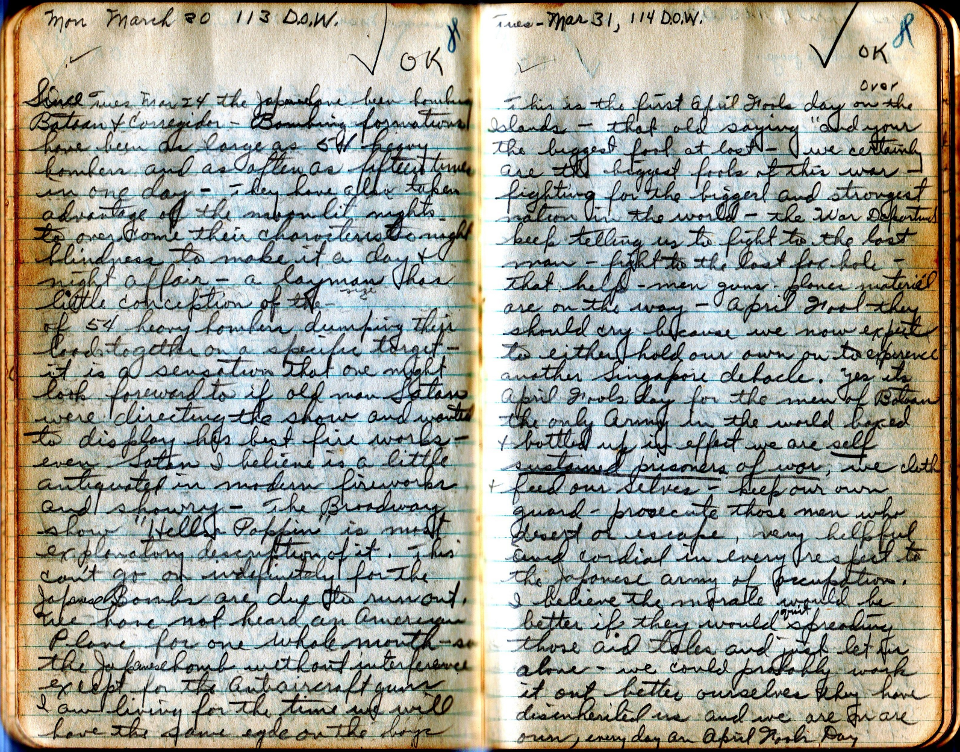 Mon March 30 113 D.O.W.
OK
Since Tues Mar 24 the Japs have been bombing
Bataan & Corregidor - Bombing formations
have been as large as 54 heavy
bombers and as often as fifteen times
in one day - They have also taken
advantage of the moonlit nights
to over come their characteristic night
blindness to make it a day &
night affair - a layman has
little conception of the
of 54 heavy bombers dumping their
loads together on a specific target -
it is a sensation that one might
look foreward to if old man Satan
were directing the show and wanted
to display his best fire works -
even Satan I believe is a little
antiquated in modern fireworks
and showry - The Broadway
show "Hells Poppin" is most
explanatory description of it. This
can't go on indefinitely for the
Japanese Bombs are due to run out.
We have not heard an American
Plane for one whole month - so
the Japanese bomb without interference
except for the antiaircraft guns
I am living for the time we will
have the same egde on the
Tues - Mar 31, 114 D.O.W.
OK
over
This is the first April Fools day on the
Islands - that old saying "and your
the biggest fool at last - we certainly
are the biggest fools of this war -
fighting for the biggest and strongest
nation in the world - the War Department
keep telling us to fight to the last
man - fight to the last fox hole -
that help - men guns - planes material
are on the way - April Fool - they
should cry because we now expect
to either hold our own or to experience
another Singapore debacle. Yes its
April Fools day for the men of Bataan
the only Army in the world boxed
& bottled up in effect we are self
sustained prisoners of war, we clothe
& feed our selves - keep our own
guard - prosecute those men who
desert or escape, very helpful
and cordial in every respect to
the Japanese army of occupation.
I believe the morale would be
better if they would quit spreading
those aid tales and just let us
alone - we could probably work
it out better ourselves they have
disinherited us and we are on are
own, every day an April Fools Day